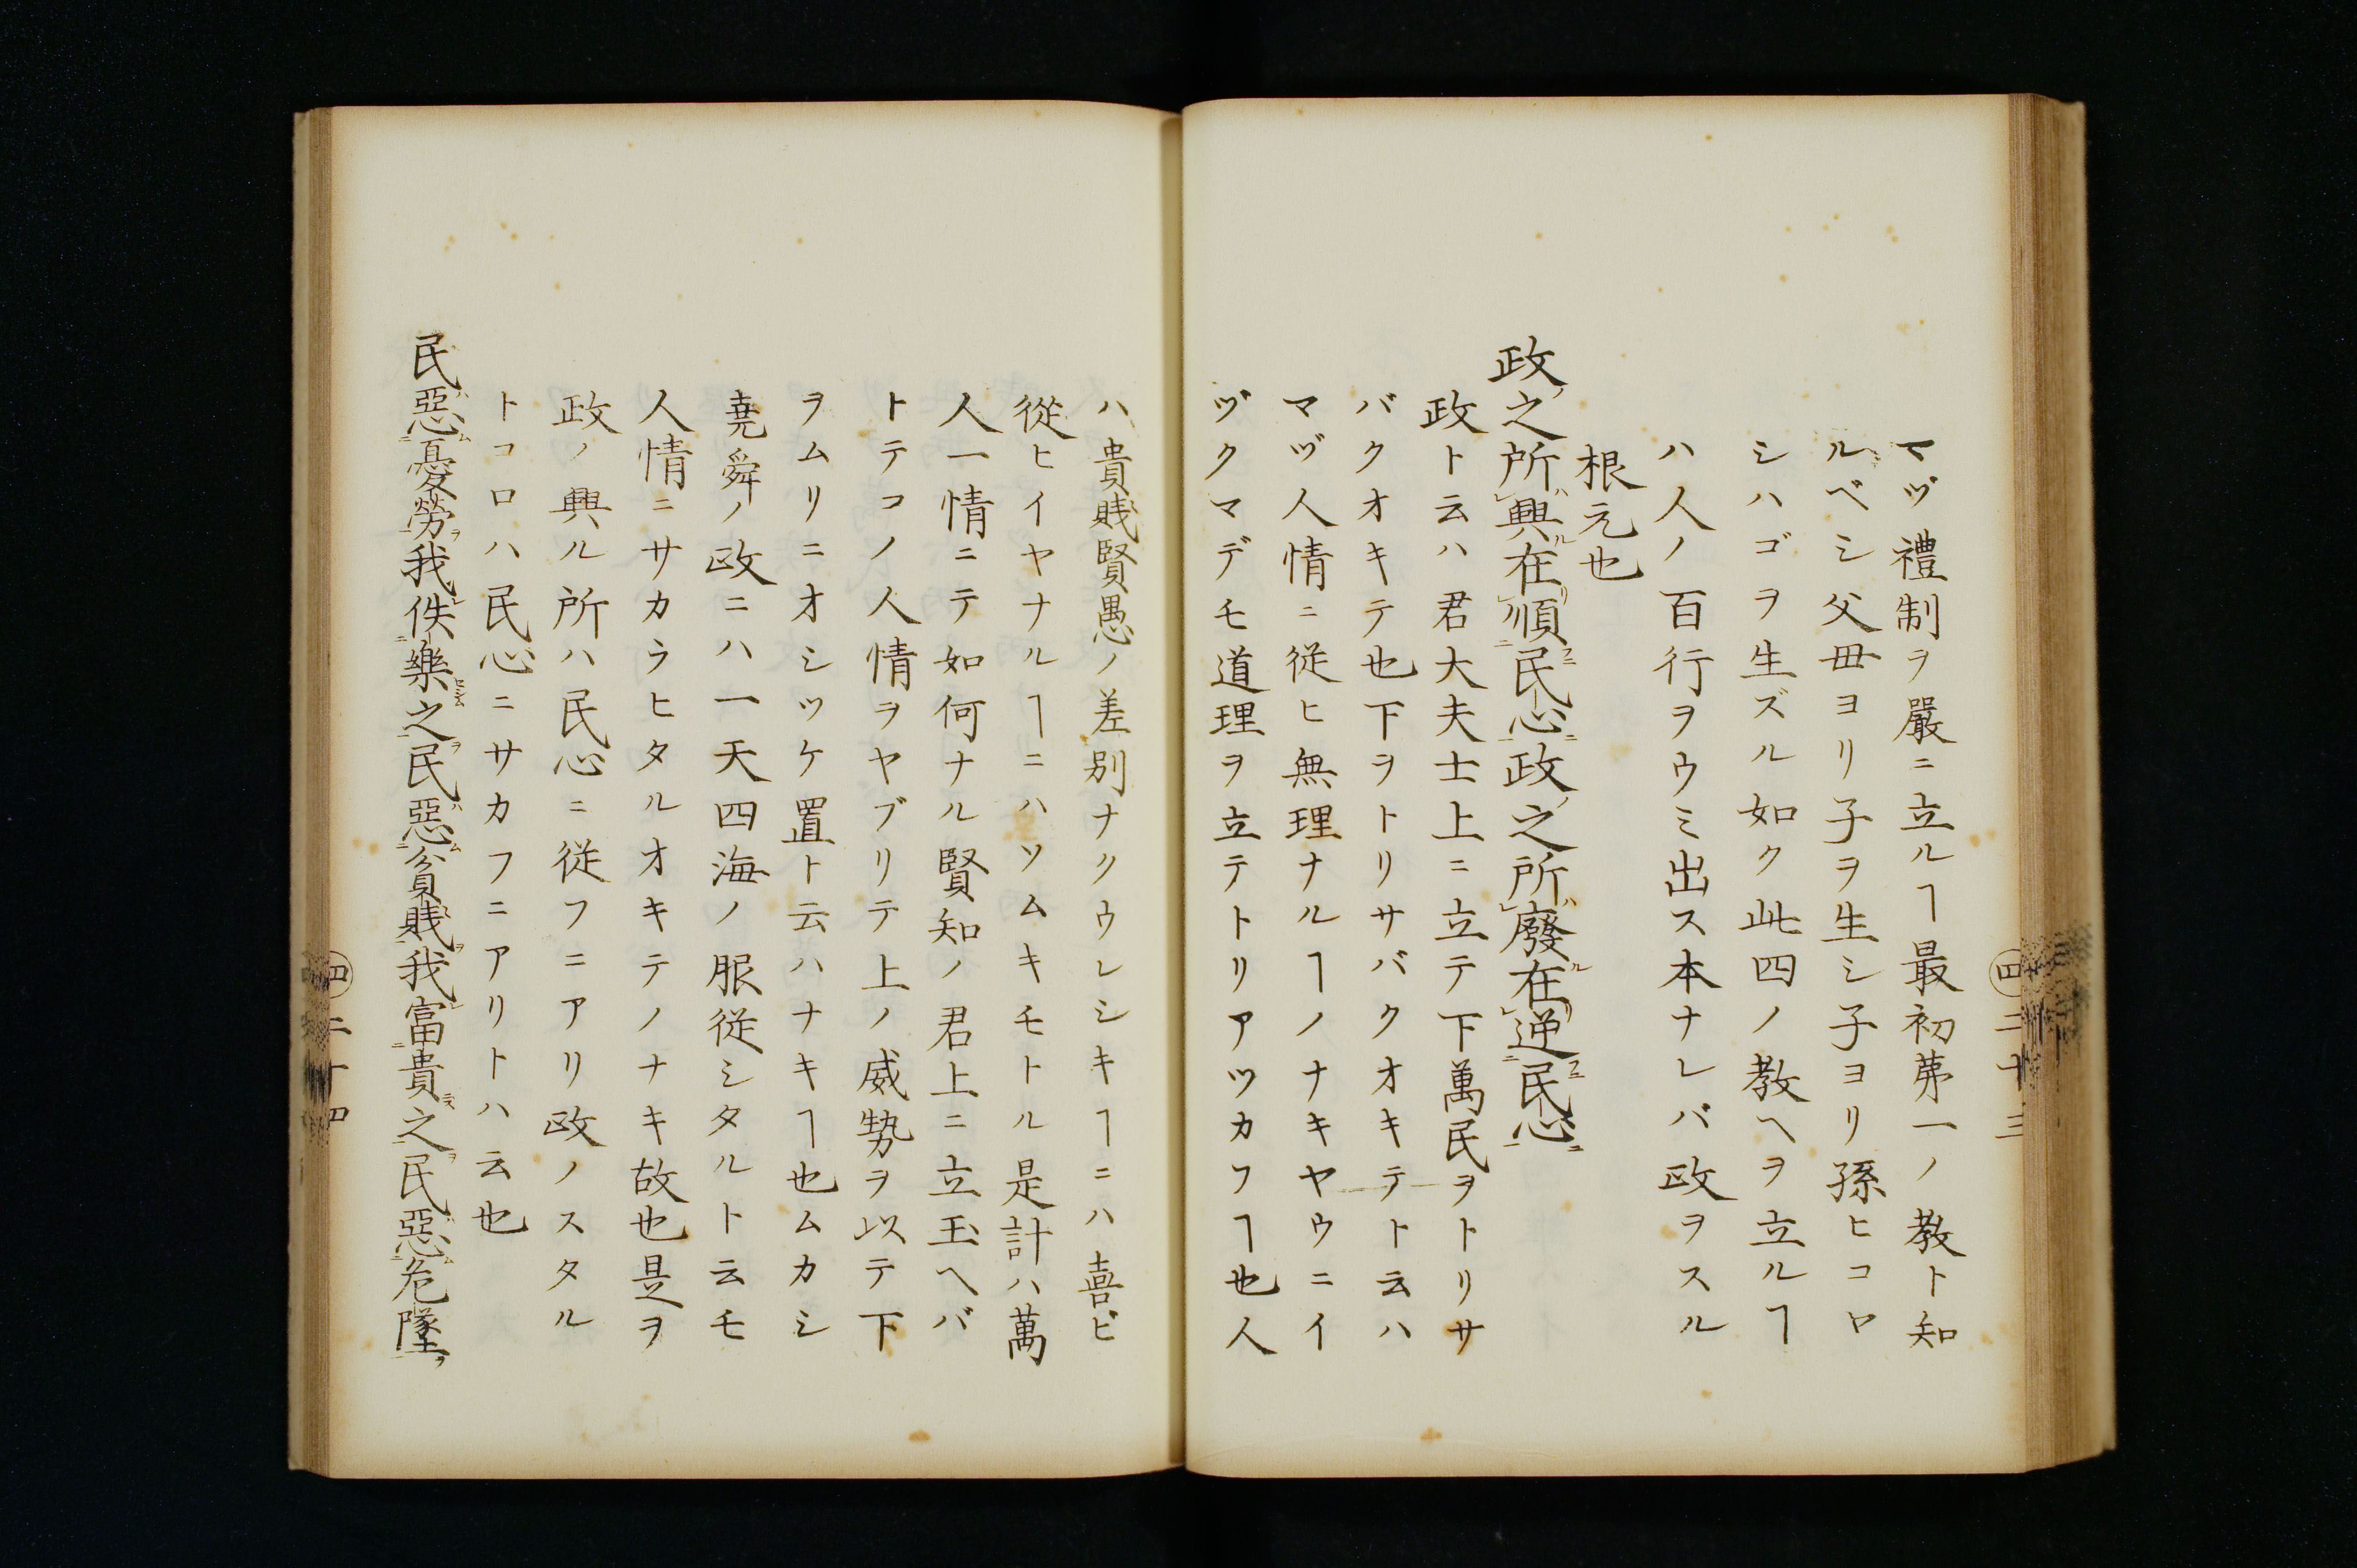 マヅ禮制ヲ嚴ニ立ルヿ最初苐一ノ教ト知
ルベシ父母ヨリ子ヲ生シ子ヨリ孫ヒコロ
シハゴヲ生ズル如ク此四ノ教ヘヲ立ルヿ
ハ人ノ百行ヲウミ出ス本ナレバ政ヲスル
根元也
政之所興在順民心政之所廢在逆民心
政ト云ハ君大夫士上ニ立テ下萬民ヲトリサ
バクオキテ也下ヲトリサバクオキテト云ハ
マヅ人情ニ従ヒ無理ナルヿノナキヤウニイ
ヅクマデモ道理ヲ立テトリアツカフヿ也人
ハ貴賎賢愚ノ差別ナクウレシキヿニハ喜ビ
從ヒイヤナルヿニハソムキモトル是計ハ萬
人一情ニテ如何ナル賢知ノ君上ニ立玉ヘバ
トテコノ人情ヲヤブリテ上ノ威勢ヲ以テ下
ヲムリニオシツケ置ト云ハナキヿ也ムカシ
堯舜ノ政ニハ一天四海ノ服從シタルト云モ
人情ニサカラヒタルオキテノナキ故也是ヲ
政ノ興ル所ハ民心ニ從フニアリ政ノスタル
トコロハ民心ニサカフニアリトハ云也
民惡憂勞我佚樂之民惡貧賎我富貴之民惡危墜
四二十三
四二十四